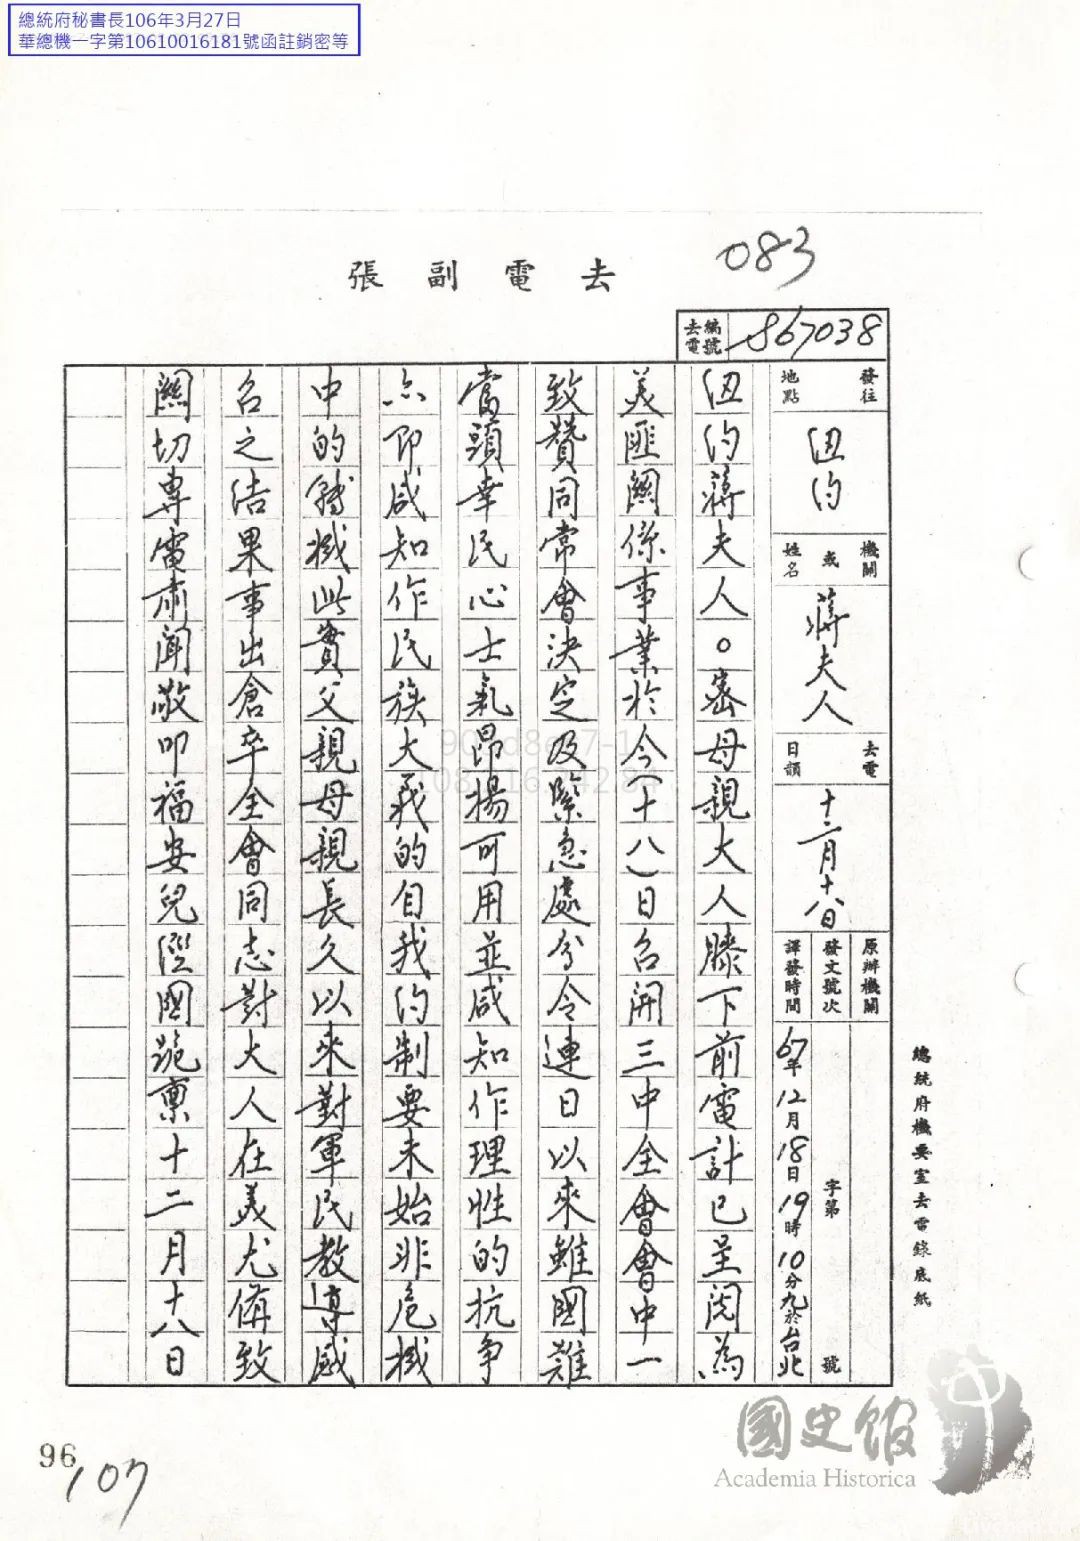 總統府秘書長106年3月27日
華總機一字第10610016181號函註銷密等
083
張副電去
去電編號 867038
發往地點
紐約
機關或姓名
蔣夫人
去電日韻
十二月十八日
原辦機關
發文號次 字第 號
譯發時間 67年12月18日19時10分九於台北
紐約蔣夫人。密母親大人膝下前電計已呈閱為
美匪關係事業於今(十八)日召開三中全會會中一
致贊同常會決定及緊急處分令連日以來雖國難
當頭幸民心士氣昂揚可用並咸知作理性的抗爭
亦即咸知作民族大義的自我約制要未始非危機
中的轉機此實父親母親長久以來對軍民教導感
召之結果事出倉卒全會同志對大人在美尤備致
關切專電肅聞敬叩福安兒經國跪稟十二月十八日
總統府機要室去電錄底紙
96
107
國史館
Academia Historica